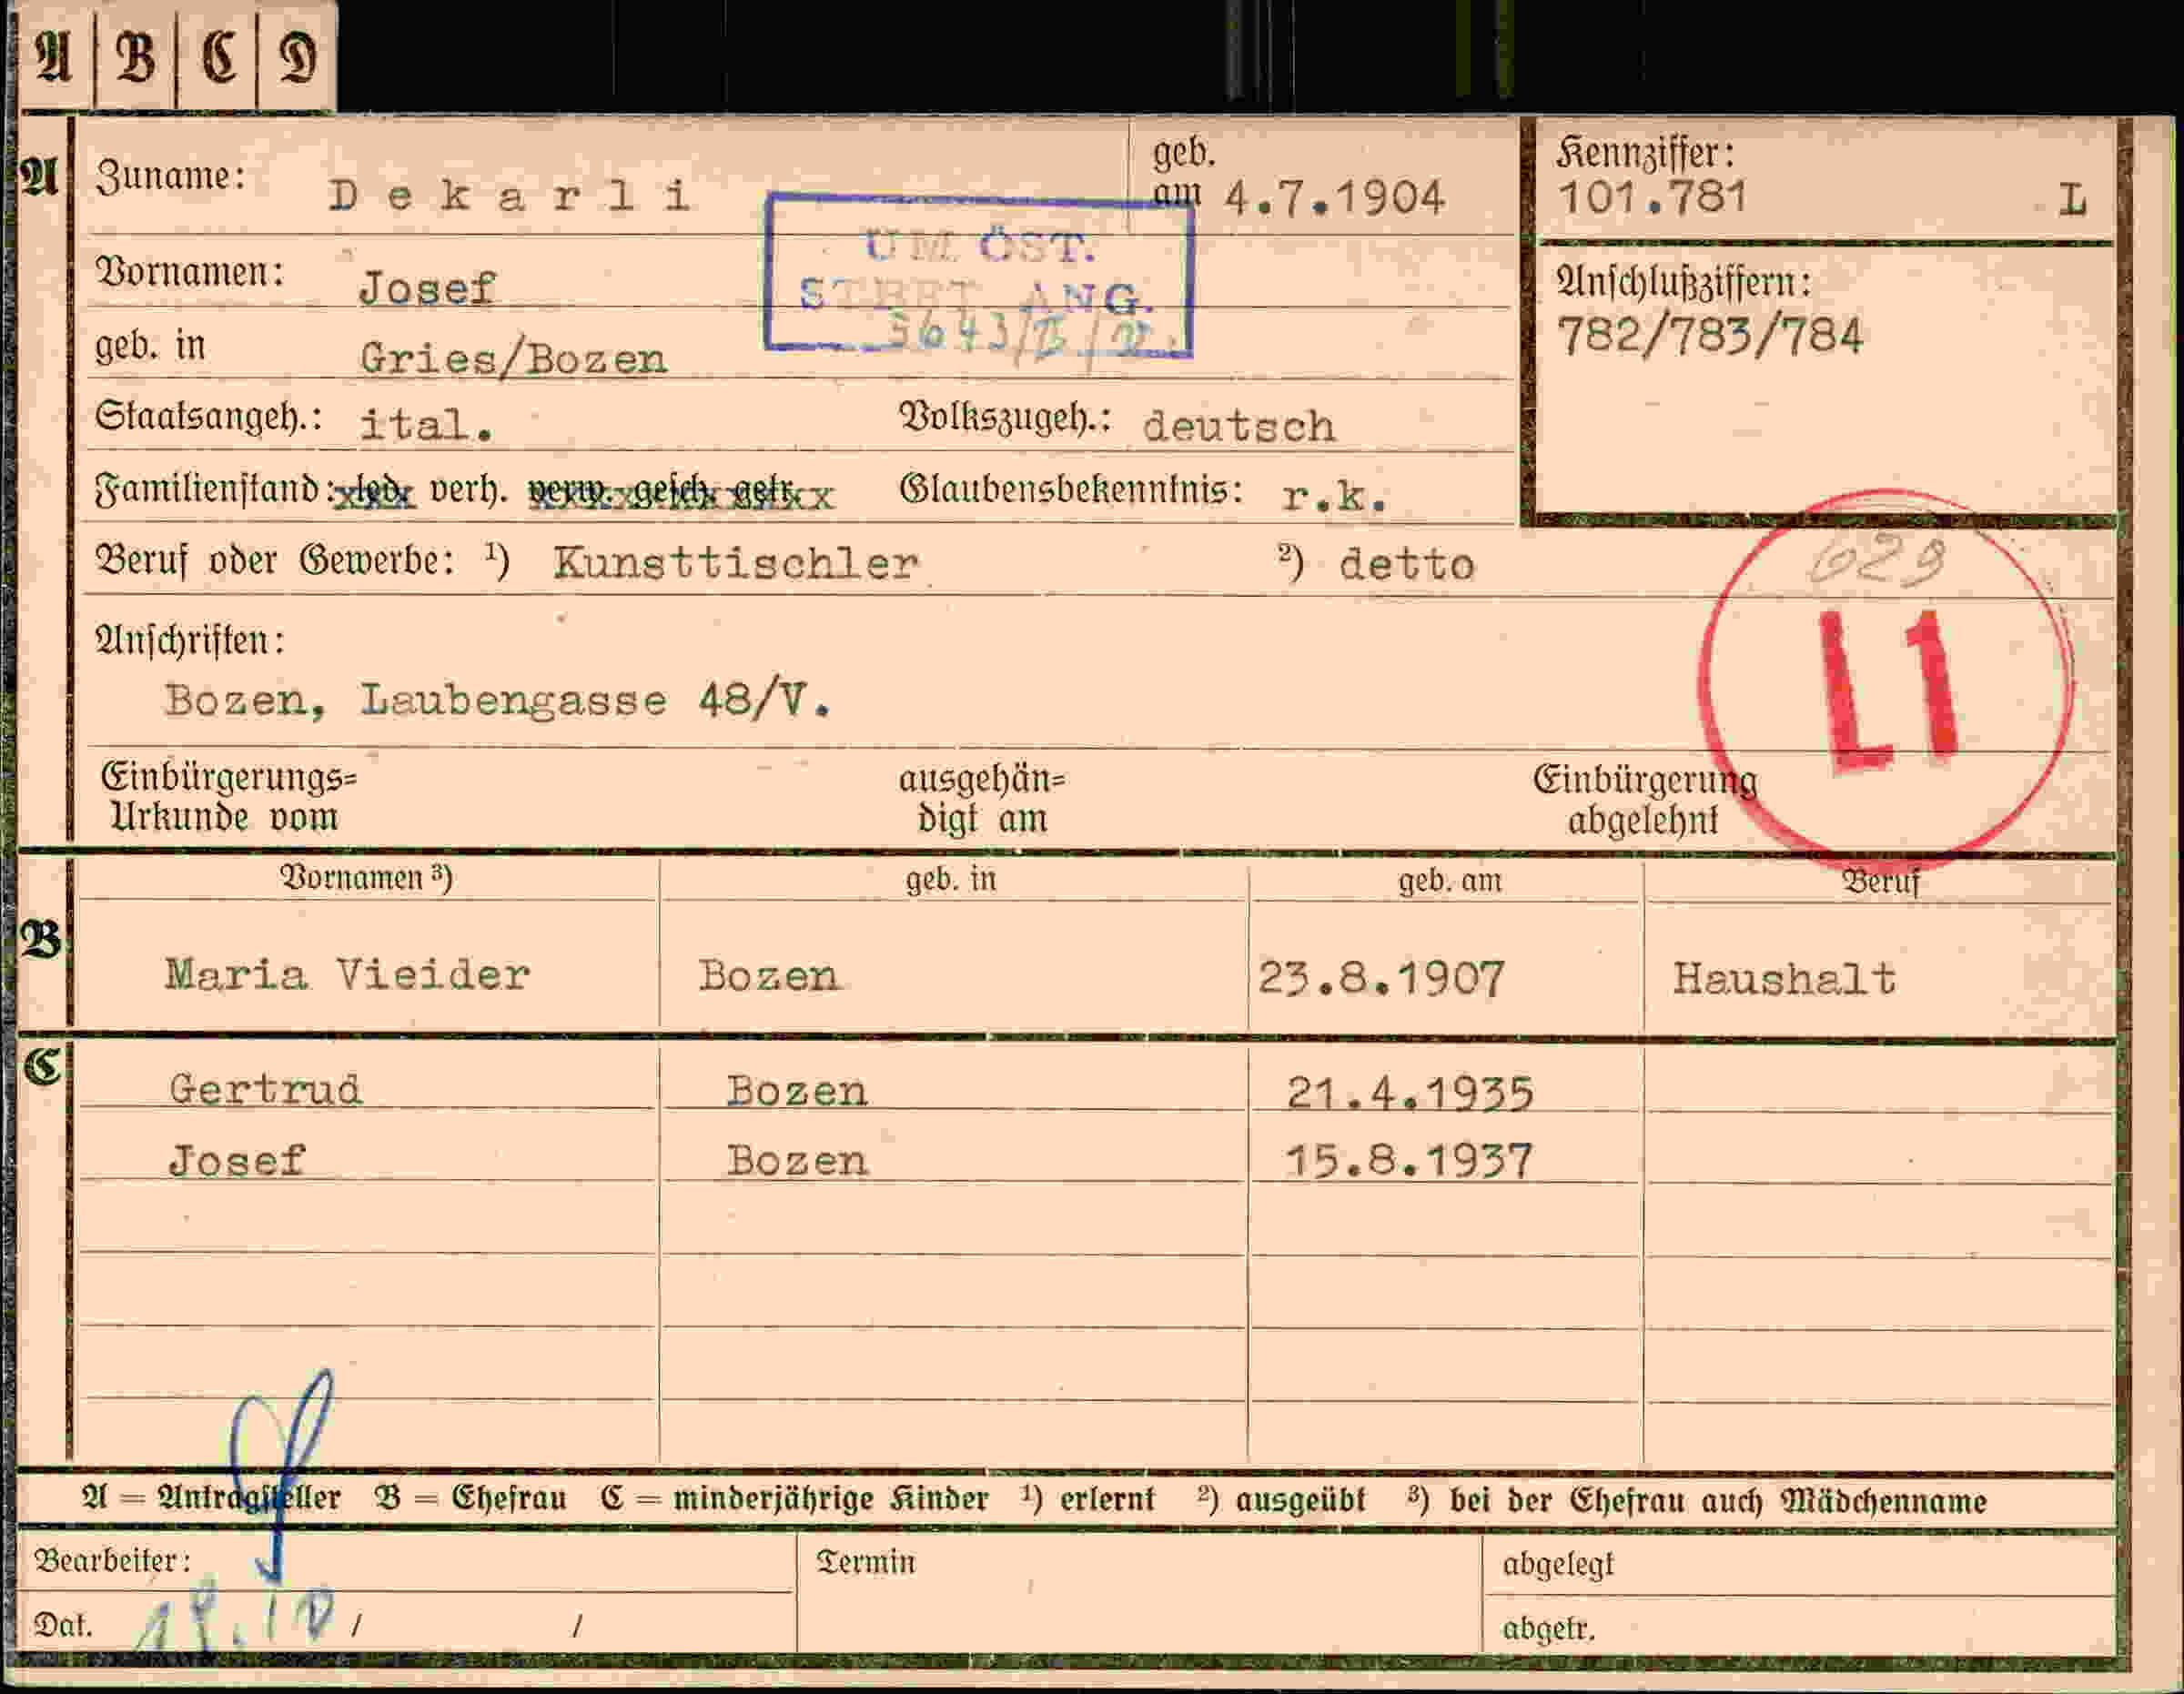 A B C D
A Zuname: Dekarli geb. am 4.7.1904
Kennziffer: 101.781 L
UM ÖST. STBBT ANG.
Vornamen: Josef
Anschlußziffern: 782/783/784
geb. in Gries/Bozen
Staatsangeh.: ital. Volkszugeh.: deutsch
Familienstand: led. verh. verw. gesch. getr. Glaubensbekenntnis: r.k.
Beruf oder Gewerbe: ¹) Kunsttischler ²) detto
629
L1
Anschriften:
Bozen, Laubengasse 48/V.
Einbürgerungs=
Urkunde vom
ausgehän=
digt am
Einbürgerung
abgelehnt
Vornamen ³) geb. in geb. am Beruf
B Maria Vieider Bozen 23.8.1907 Haushalt
C Gertrud Bozen 21.4.1935
Josef Bozen 15.8.1937
A = Antragsteller B = Ehefrau C = minderjährige Kinder ¹) erlernt ²) ausgeübt ³) bei der Ehefrau auch Mädchenname
Bearbeiter: Termin abgelegt
Dat. / / abgetr.